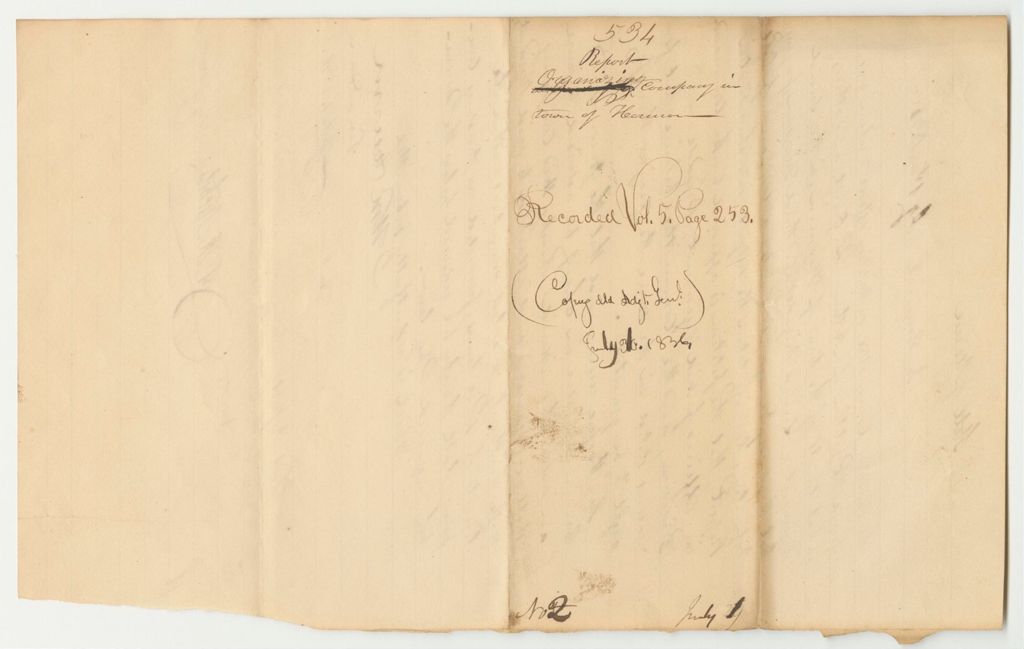 534
Report
Organizing Company in
town of Hermon
Recorded Vol. 5. Page 253.
(Copy dld Adjt. Genl.)
July 1836,
No 2
July 1